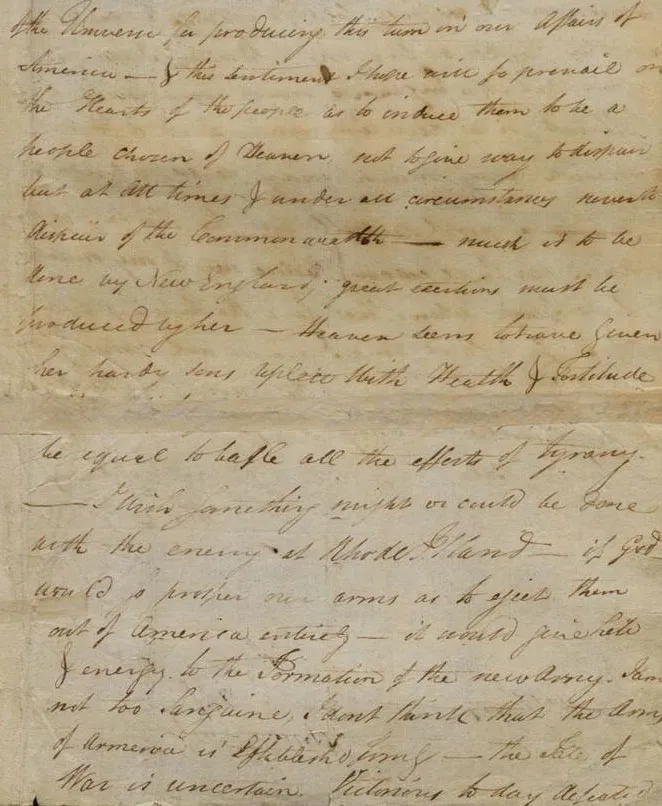 of the Universe for producing this turn in our Affairs of
America — & this sentiment I hope will so prevail on
the Hearts of the people as to induce them to be a
people chosen of Heaven, not to give way to dispair
but at all times & under all circumstances never to
dispair of the Commonwealth — much is to be
done by New England, great exertions must be
produced by her — Heaven seems to have given
her hardy sons with Health & Fortitude
be equal to bafle all the effects of tyrany.
— I wish something might or could be done
with the enemy at Rhode Island — if God
would so prosper our arms as to eject them
out of America entirely — it would give
& energy to the Formation of the new Army. I am
not too Sanguine, I dont think that the Arm
of Armerica is Establish'd — the Fate of
War is uncertain. Victorious to day defeated